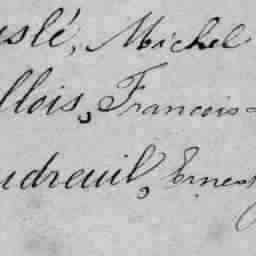 uslé, Michel
llois, Francois-
udreuil, Ernes